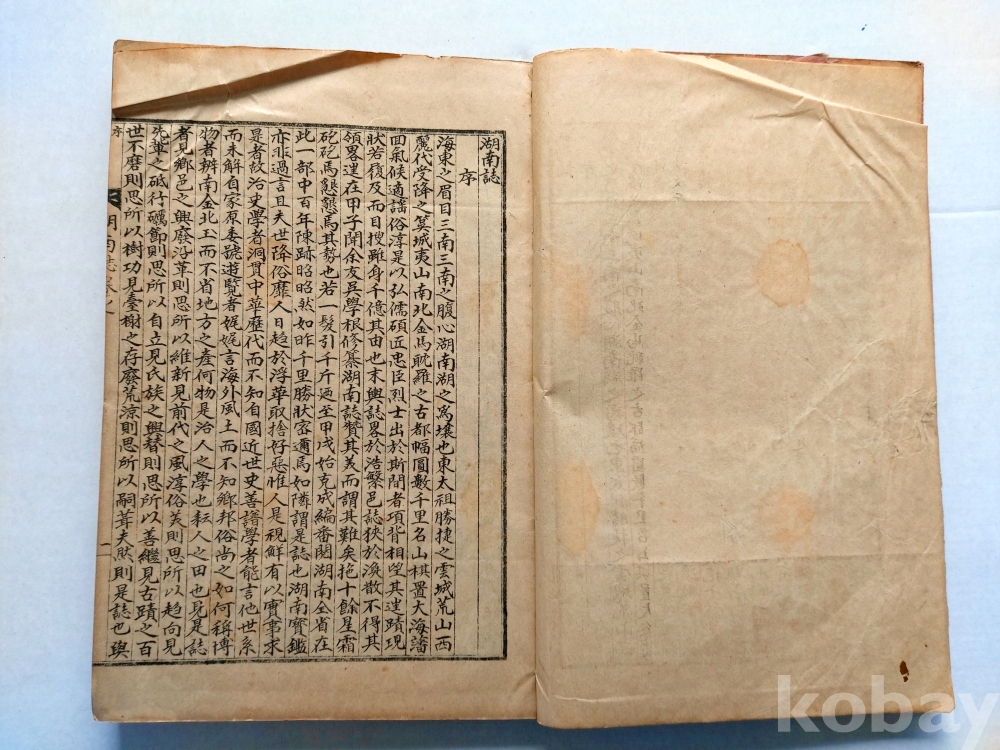 湖南誌
序
海東之眉目三南三南之腹心湖南湖之爲壤也東太祖勝捷之雲城荒山西
麗代受降之箕城夷山南北金馬耽羅之古都幅圓數千里名山棋置大海藩
面氣候適謠俗淳是以弘儒碩匠忠臣烈士出於斯間者項背相望其遺蹟現
狀若後及而目搜雖身千億其由也末輿誌畧於浩繁邑誌狹於渙散不得其
領畧逮在甲子聞余友吳學根修纂湖南誌贊其美而謂其難矣抱十餘星霜
矻矻焉懇懇焉其勢也若一髮引千斤迺至甲戌始克成編番閱湖南全省在
此一部中百年陳跡昭昭然如昨千里勝狀密邇焉如隣謂是誌也湖南寶鑑
亦非過言且夫世降俗靡人日趨於浮華取捨好惡惟人是視鮮有以實事求
是者故治史學者洞貫中華歷代而不知自國近世史善譜學者能言他世系
而未解自家原委號遊覽者娓娓言海外風土而不知鄉邦俗尚之如何稱博
物者辨南金北玉而不省地方之產何物是治人之學也耘人之田也見是誌
者見鄉邑之興廢沿革則思所以維新見前代之風淳俗美則思所以趍向見
先輩之砥行礪節則思所以自立見氏族之興替則思所以善繼見古蹟之百
世不磨則思所以樹功見臺榭之存廢荒涼則思所以嗣葺夫然則是誌也與
湖南誌卷之
序
一
kobay